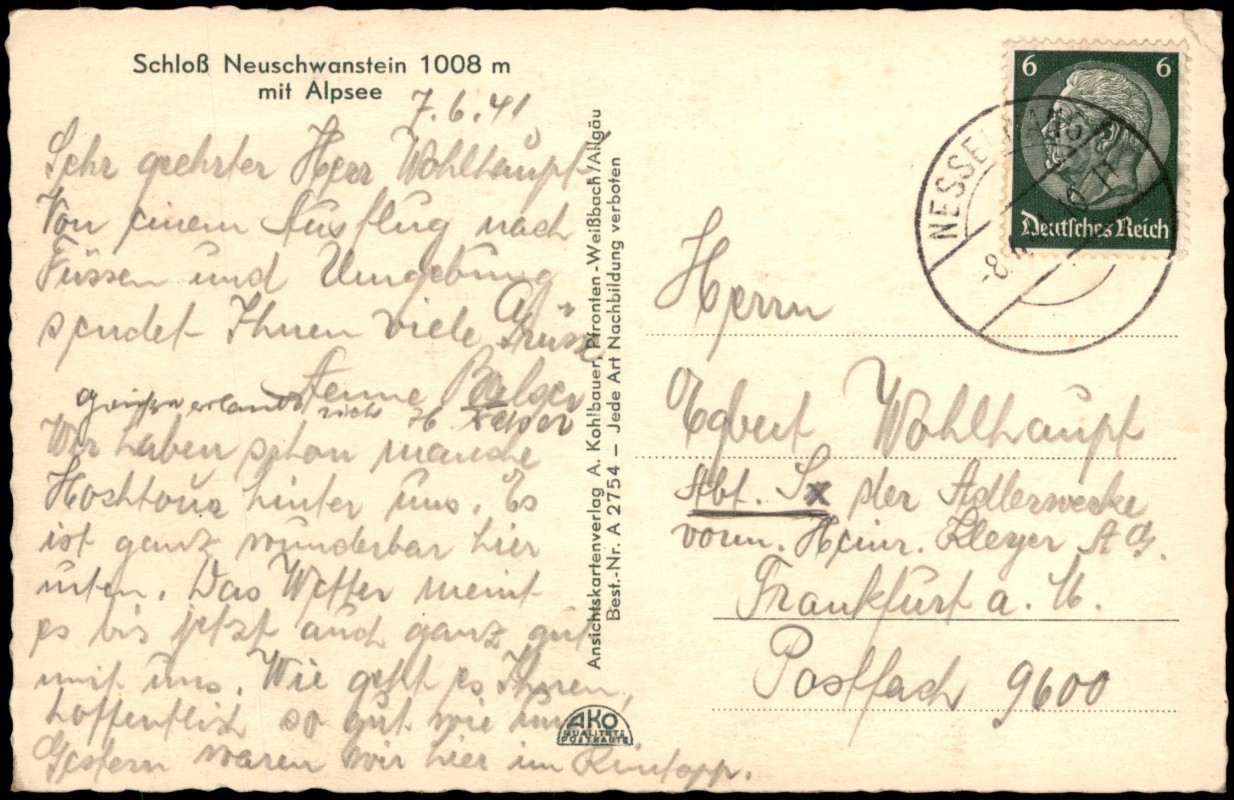 Schloß Neuschwanstein 1008 m
mit Alpsee
7.6.41
Sehr geehrter Herr Wohlhaupt
Von einem Ausflug nach
Füssen und Umgebung
sendet Ihnen viele Grüsse
Aenne Balser
Wir haben schon manche
Hochtour hinter uns. Es
ist ganz wunderbar hier
unten. Das Wetter meint
es bis jetzt auch ganz gut
mit uns. Wie geht es Ihnen,
hoffentlich so gut wie uns
Gestern waren wir hier im Kintopp.
Ansichtskartenverlag A. Kohlbauer, Pfronten-Weißbach/Allgäu
Best.-Nr. A 2754 — Jede Art Nachbildung verboten
AKO
QUALITÄTS
POSTKARTE
6 6
Deutsches Reich
NESSELWANG
Herrn
Egbert Wohlhaupt
Abt. Sx der Adlerwerke
vorm. Heinr. Kleyer AG.
Frankfurt a. M.
Postfach 9600